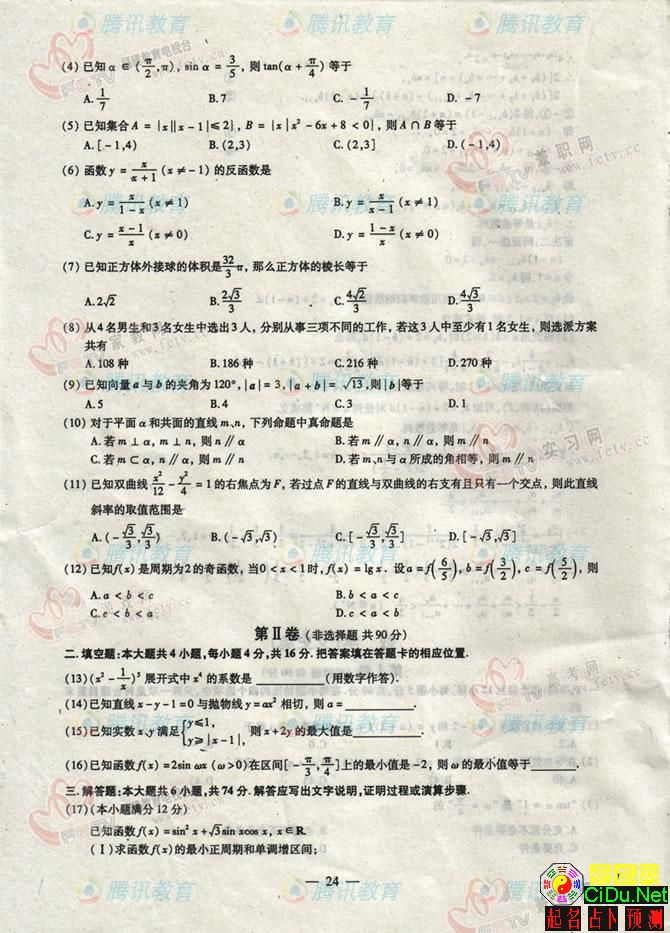 (4) 已知 α ∈ (π/2, π), sin α = 3/5, 则 tan(α + π/4) 等于
A. 1/7 B. 7 C. - 1/7 D. - 7
(5) 已知集合 A = {x||x - 1|≤2}, B = {x|x² - 6x + 8 < 0}, 则 A ∩ B 等于
A. [ - 1,4) B. (2,3) C. (2,3] D. ( - 1,4)
(6) 函数 y = x/(x + 1) (x ≠ - 1) 的反函数是
A. y = x/(1 - x) (x ≠ 1) B. y = x/(x - 1) (x ≠ 1)
C. y = (x - 1)/x (x ≠ 0) D. y = (1 - x)/x (x ≠ 0)
(7) 已知正方体外接球的体积是 32/3 π, 那么正方体的棱长等于
A. 2√2 B. 2√3/3 C. 4√2/3 D. 4√3/3
(8) 从4名男生和3名女生中选出3人, 分别从事三项不同的工作, 若这3人中至少有1名女生, 则选派方案
共有
A. 108 种 B. 186 种 C. 216 种 D. 270 种
(9) 已知向量 a 与 b 的夹角为 120°, |a| = 3, |a + b| = √13, 则|b|等于
A. 5 B. 4 C. 3 D. 1
(10) 对于平面 α 和共面的直线 m、n, 下列命题中真命题是
A. 若 m ⊥ α, m ⊥ n, 则 n ∥ α B. 若 m ∥ α, n ∥ α, 则 m ∥ n
C. 若 m ⊂ α, n ∥ α, 则 m ∥ n D. 若 m、n 与 α 所成的角相等, 则 m ∥ n
(11) 已知双曲线 x²/12 - y²/4 = 1 的右焦点为 F, 若过点 F 的直线与双曲线的右支有且只有一个交点, 则此直线
斜率的取值范围是
A. ( - √3/3, √3/3) B. ( - √3, √3) C. [ - √3/3, √3/3] D. [ - √3, √3]
(12) 已知f(x) 是周期为2的奇函数, 当0 < x < 1时, f(x) = lg x. 设 a = f(6/5), b = f(3/2), c = f(5/2), 则
A. a < b < c B. b < a < c
C. c < b < a D. c < a < b
第Ⅱ卷 (非选择题 共 90 分)
二. 填空题: 本大题共 4 小题, 每小题 4 分, 共 16 分. 把答案填在答题卡的相应位置.
(13) (x² - 1/x)⁵ 展开式中 x⁴ 的系数是 ________ (用数字作答).
(14) 已知直线 x - y - 1 = 0 与抛物线 y = ax² 相切, 则 a = ________.
(15) 已知实数 x、y 满足 {y≤1, y≥|x - 1|, 则 x + 2y 的最大值是 ________.
(16) 已知函数 f(x) = 2sin ωx (ω > 0) 在区间 [ - π/3, π/4] 上的最小值是 - 2, 则 ω 的最小值等于 ________.
三. 解答题: 本大题共 6 小题, 共 74 分. 解答应写出文字说明, 证明过程或演算步骤.
(17) (本小题满分 12 分)
已知函数 f(x) = sin² x + √3sin xcos x, x ∈ R.
(Ⅰ) 求函数 f(x) 的最小正周期和单调增区间;
— 24 —
腾讯教育
CiDu.Net
起名占卜预测